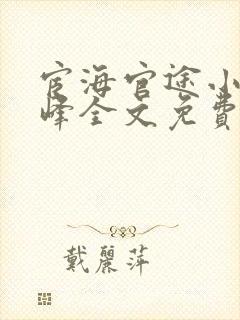 宦海官途小
峰全文免費
戴麗萍